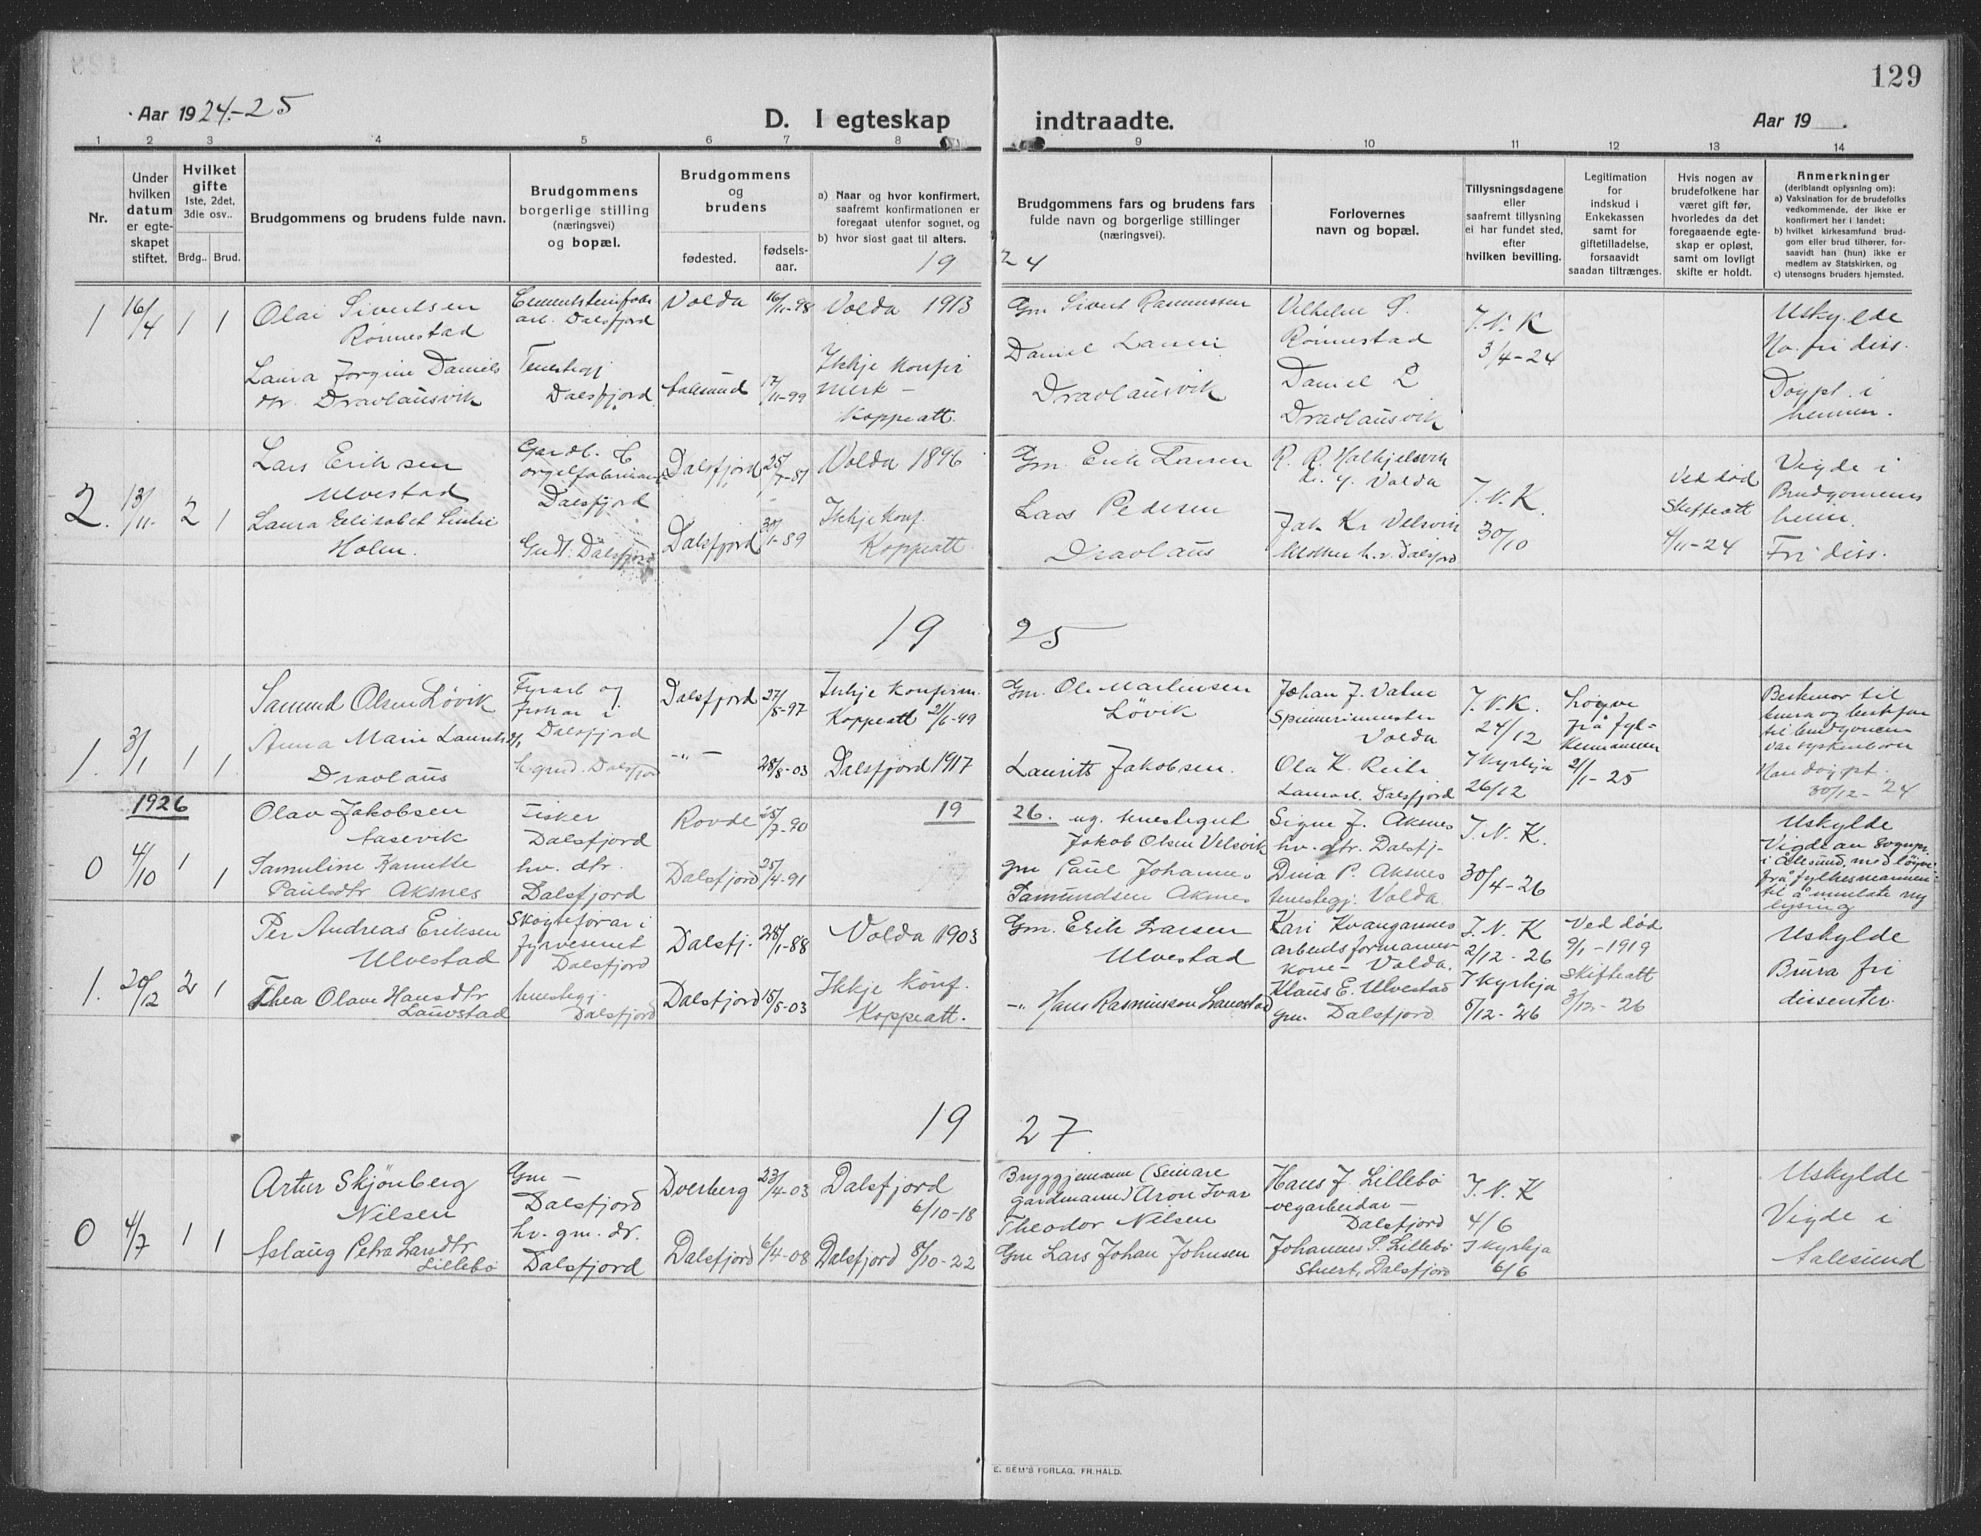 129
Aar 1924-25
D. I egteskap indtraadte.
Aar 19
1 2 3 4 5 6 7 8 9 10 11 12 13 14
Nr.
Under hvilken datum er egteskapet stiftet.
Hvilket gifte 1ste, 2det, 3die osv..
Brdg.. Brud.
Brudgommens og brudens fulde navn.
Brudgommens borgerlige stilling (næringsvei) og bopæl.
Brudgommens og brudens
fødested. fødselsaar.
a) Naar og hvor konfirmert, saafremt konfirmationen er foregaat utenfor sognet, og
b) hvor sidst gaat til alters.
Brudgommens fars og brudens fars fulde navn og borgerlige stillinger (næringsvei).
Forlovernes navn og bopæl.
Tillysningsdagene eller saafremt tillysning ei har fundet sted, efter hvilken bevilling.
Legitimation for indskud i Enkekassen samt for giftetilladelse, forsaavidt saadan tiltrænges.
Hvis nogen av brudefolkene har været gift før, hvorledes da det foregaaende egteskap er opløst, samt om lovligt skifte er holdt.
Anmerkninger (deriblandt oplysning om):
a) Vaksination for de brudefolks vedkommende, der ikke er konfirmert her i landet;
b) hvilket kirkesamfund brudgom eller brud tilhører, forsaavidt han (hun) ikke er medlem av Statskirken, og
c) utensogns bruders hjemsted.
19 24
1 16/4 1 1
Olai Sivertsen
Rønnestad
Dalsfjord
Volda 16/11-98
Volda 1913
Gm Sivert Rasmussen
Vilhelm S.
Rønnestad
T. N. K
3/4-24
Uskylde
Laura Jorgine Daniels
dtr. Dravlausvik
Tenestegj
Dalsfjord
Aalesund 17/11-99
Ikkje konfir
mert -
Koppeatt.
Daniel Larsen
Dravlausvik
Daniel L
Dravlausvik
Ho. fri diss.
Døypt i
heimen.
2. 13/11 2 1
Lars Eriksen
Ulvestad
Gardb. &
Dalsfjord
Dalsfjord 25/7-81
Volda 1896
Gm. Erik Larsen
Volda
T. N. K.
30/10
Ved død
Skifteatt
4/11-24
Vigde i
Brudgomens
heim.
Fri diss.
Laura Elisabet
Holm.
Dalsfjord
Dalsfjord 30/1-89
Ikkje konf.
Koppeatt
Lars Pedersen
Dravlaus
Dalsfjord
19 25
1. 3/1 1 1
Samund Olsen Løvik
Fyrarb og
fiskar i
Dalsfjord
Dalsfjord 27/8-97
Ikkje konfirm.
Koppeatt
Gm. Ole Martinsen
Løvik
Johan J. Vatne
Spinnerimester
Volda
T. N. K.
24/12
I kyrkja
26/12
Løyve
frå fyl-
kesmannen
2/1-25
Bestemor til
brura og bestefar
til brudgomen
var syskenborn
Han døypt
30/12-24
Anna Marie Laurits
Dravlaus
Dalsfjord
-"- 28/8-03
Dalsfjord 1917
Laurits Jakobsen.
Ola K. Reite
Dalsfjord
1926
19 26.
0 4/10 1 1
Olav Jakobsen
Aasevik
Fisker
Dalsfjord
Rovde 25/7-90
ug. tenestegut
Jakob Olsen Velsvik
Signe J. Aksnes
hv. dtr. Dalsfj-
T. N. K.
30/4-26
Uskylde
Samuline Kanutte
Paulsdtr Aksnes
hv. dtr.
Dalsfjord
Dalsfjord 25/4-91
Gm Paul Johannes
Samundsen Aksnes
Dina P. Aksnes
tenestegj. Volda.
Vigde av Sogнpr.
i Ålesund, med løyve
frå fylkesmannen
til å umlate ny
lysing
1. 20/12 2 1
Per Andreas Eriksen
Ulvestad
Skøyteførar i
fyrvesenet
Dalsfjord
Dalsfj. 28/1-88
Volda 1903
Gm. Erik Larsen
Ulvestad
Kari Kvangarsnes
arbeidsformanns-
kone - Volda.
T. N. K
2/12-26
I kyrkja
5/12-26
Ved død
9/1-1919
Skifteatt
3/12-26
Uskylde
Brura fri
dissenter.
Thea Olave Hansdtr
Lauvstad
tenestegj.
Dalsfjord
Dalsfjord 15/8-03
Ikkje konf.
Koppeatt.
-"- Hans Rasmussen Lauvstad
Klaus E. Ulvestad
gm. Dalsfjord
19 27
0 4/7 1 1
Artur Skjönberg
Nilsen
Gm -
Dalsfjord
Dverberg 23/4-03
Dalsfjord
6/10-18
Bryggjemann (Seinare
gardmann) Aron Ivar
Theodor Nilsen
Hans J. Lillebø
vegarbeidar -
Dalsfjord
T. N. K
4/6
I kyrkja
6/6
Uskylde
Vigde i
Aalesund
Aslaug Petra Larsdtr
Lillebø
hv. gm. dr.
Dalsfjord
Dalsfjord 6/4-08
Dalsfjord 8/10-22
Gm Lars Johan Johnsen
Johannes P. Lillebø
Dalsfjord
E. SEM'S FORLAG, FR.HALD.